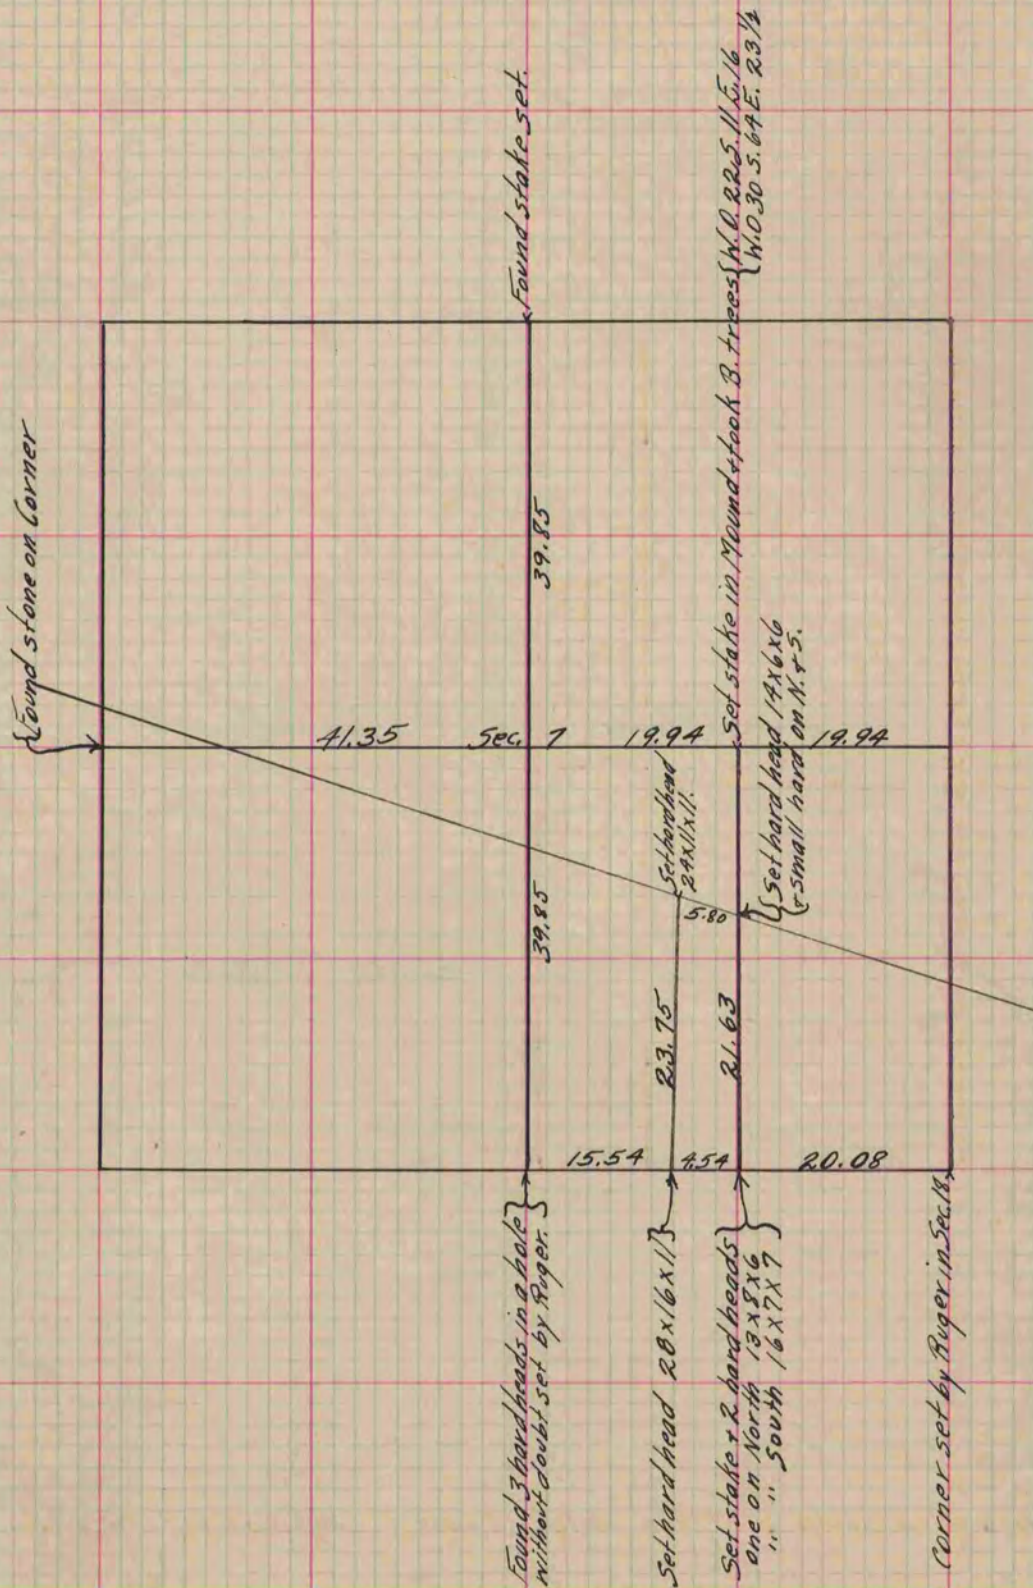 {Found stone on Corner
Found stake set.
39.85
41.35 Sec. 7 19.94 19.94
Set stake in Mound + took B. trees {W.O. 22 S. 11 E. 16
{W.O. 30 S. 64 E. 23 1/2
Set hard head
24x11x11.
{Set hard head 14x6x6
{+ small hard on N. + S.
5.80
39.85
23.75
21.63
15.54 4.54 20.08
Found 3 hard heads in a hole}
without doubt set by Ruger.}
Set hard head 28x16x11}
Set stake + 2 hard heads}
one on North 13x8x6
" " South 16x7x7}
Corner set by Ruger in Sec. 18.